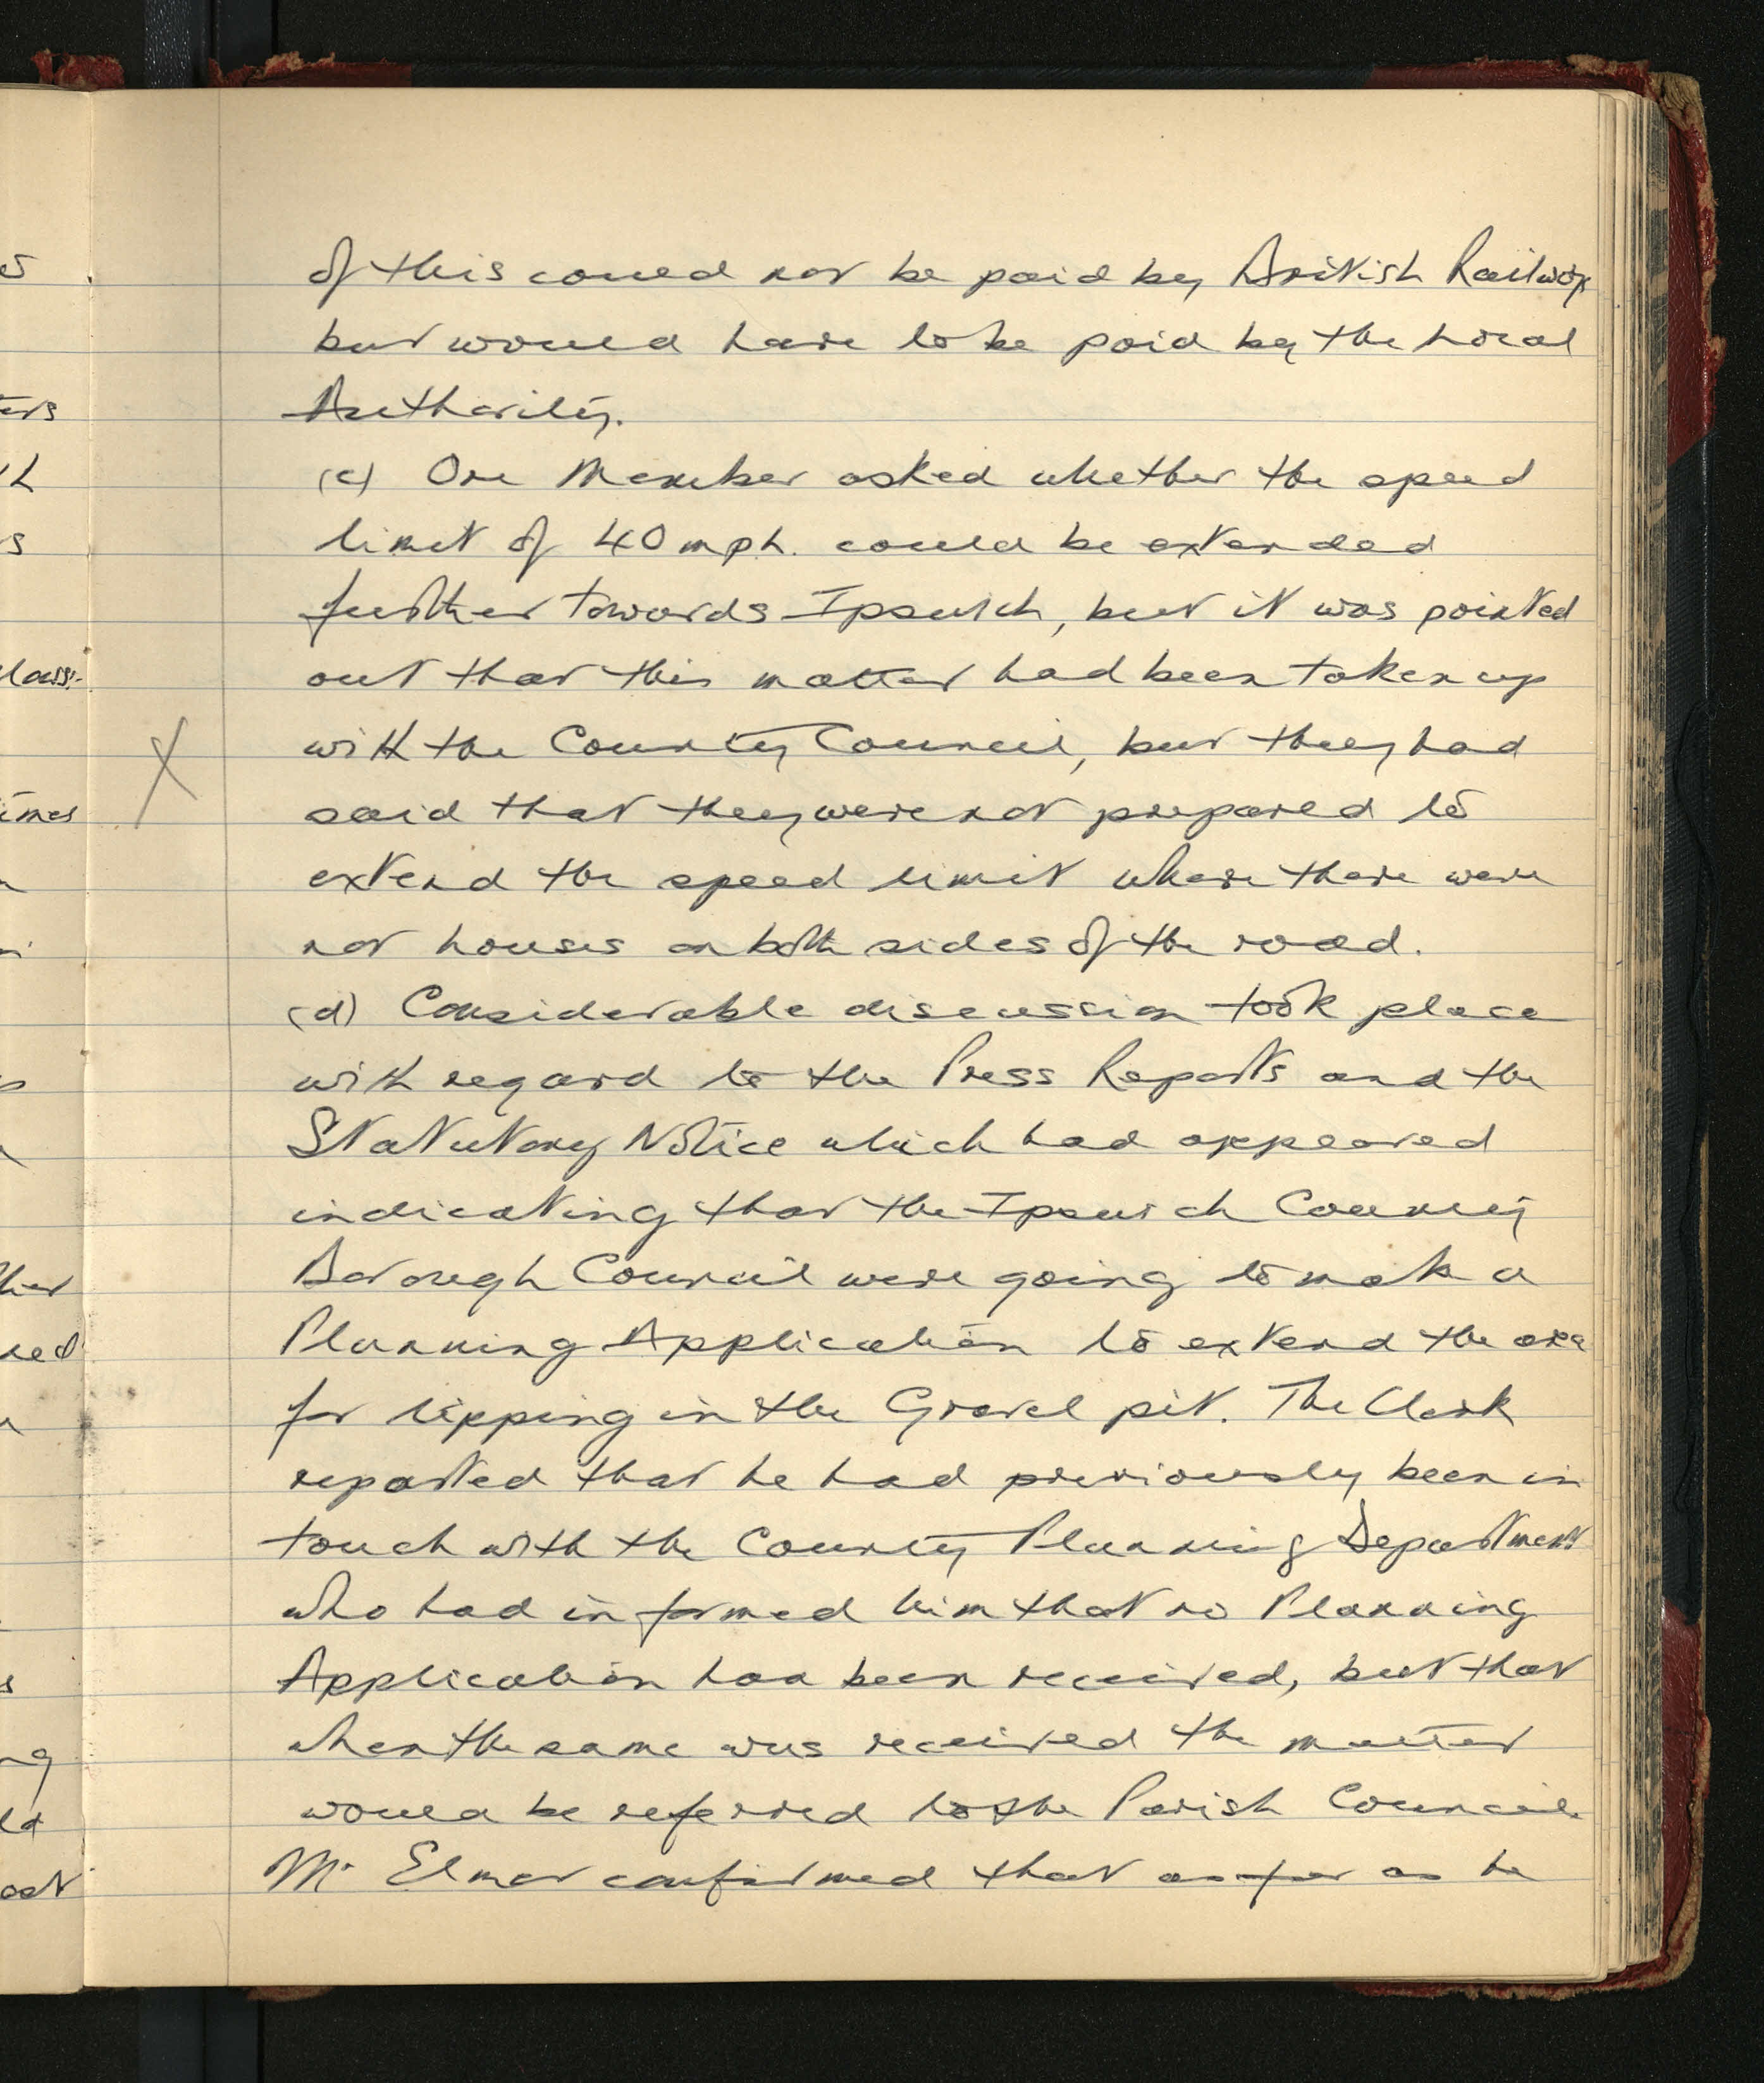 of this could not be paid by British Railways
but would have to be paid by the Local
Authority.
(c) One Member asked whether the speed
limit of 40 mph. could be extended
further towards Ipswich, but it was pointed
out that this matter had been taken up
X with the County Council, but they had
said that they were not prepared to
extend the speed limit where there were
not houses on both sides of the road.
(d) Considerable discussion took place
with regard to the Press Reports and the
Statutory Notice which had appeared
indicating that the Ipswich County
Borough Council were going to make a
Planning Application to extend the area
for tipping in the Gravel pit. The Clerk
reported that he had previously been in
touch with the County Planning Department
who had informed him that no Planning
Application had been received, but that
when the same was received the matter
would be referred to the Parish Council.
Mr Elmer confirmed that as far as he